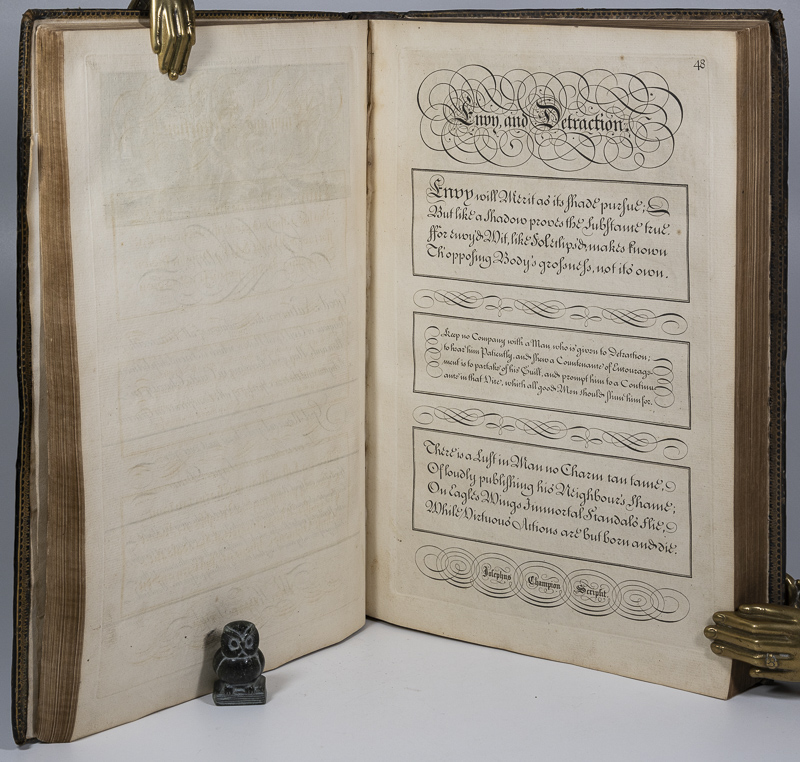 48
Envy, and Detraction.
Envy will Merit as its shade pursue;
But like a Shadow proves the Substance true.
ffor envy'd Wit, like Sol eclips'd, makes known
Th'opposing Body's grossness, not its own.
Keep no Company with a Man who is given to Detraction;
to hear him Patiently, and shew a Countenance of Encourage-
ment is to partake of his Guilt, and prompt him to a Continu-
ance in that Vice, which all good Men should shun him for.
There is a Lust in Man no Charm can tame,
Of loudly publishing his Neighbour's Shame;
On Eagles Wings Immortal Scandals flie,
While Virtuous Actions are but born and die.
Josephus Champion Scripsit